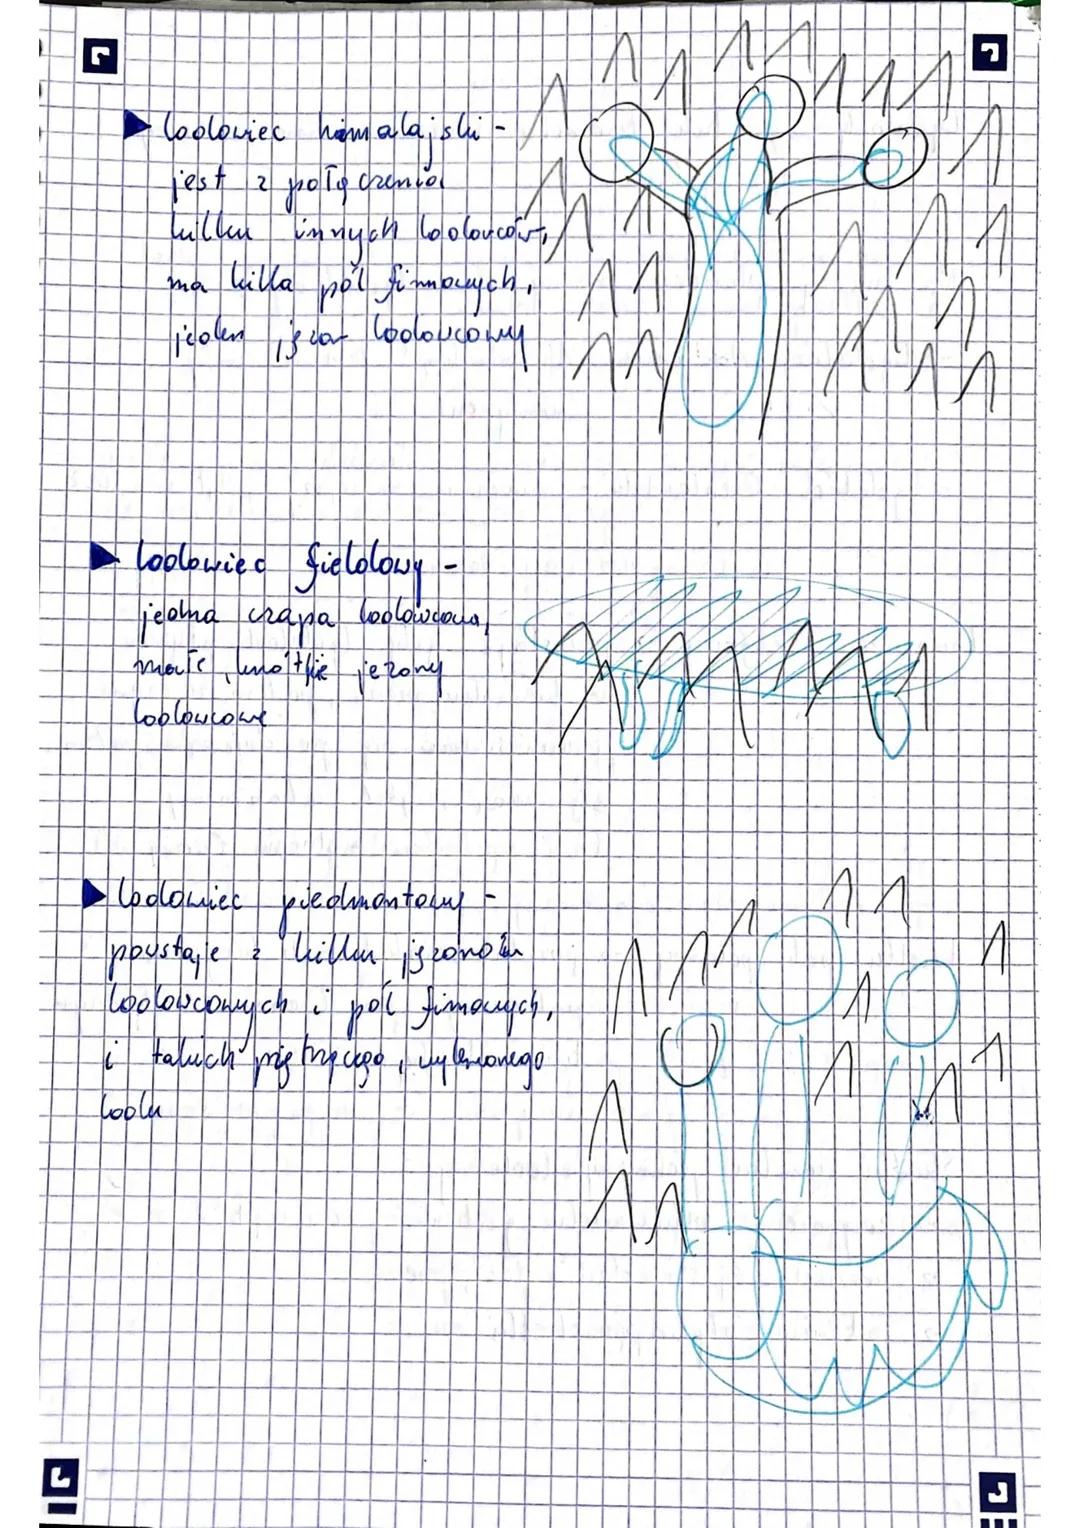 lodowiec himalajski -
jest z połączenia
kilku innych lodowców,
ma kilka pól firnowych,
jeden język lodowcowy
lodowiec fieldowy -
jedna czapa lodowcowa,
małe, krótkie jęzory
lodowcowe
lodowiec piedmontowy -
powstaje z kilku jęzorów
lodowcowych i pól firnowych,
i takich
lodu